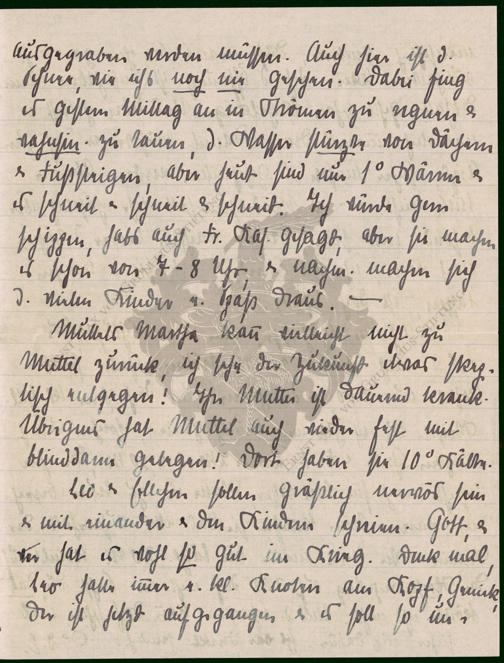 ausgegraben werden müssen. Auch hier ist d.
Schnee, wie ich's noch nie gesehen. Dabei fing
es gestern Mittag an in Strömen zu regnen &
wahnsin. zu tauen, d. Wasser stürzte von Dächern
& Fußsteigen, aber heut sind nur 1° Wärme &
es schneit & schneit & schneit. Ich würde gern
schippen, hab's auch Fr. Kas. gesagt, aber sie machen
es schon von 7-8 Uhr, & nachm. machen sich
d. vielen Kinder e. Spaß draus. —
Muttels Martha kann vielleicht nicht zu
Muttel zurück, ich sehe der Zukunft etwas skep-
tisch entgegen! Ihre Mutter ist dauernd krank.
Übrigens hat Muttel auch wieder fest mit
Blinddarm gelegen! Dort haben sie 10° Kälte.
Leo & sollen gräßlich nervös sein
& mit einander & den Kindern schreien. Gott, &
er hat es wohl so gut im Krieg. Denk mal,
Leo hatte immer e. kl. Knoten am Kopf, Genick,
der ist jetzt aufgegangen & es soll so